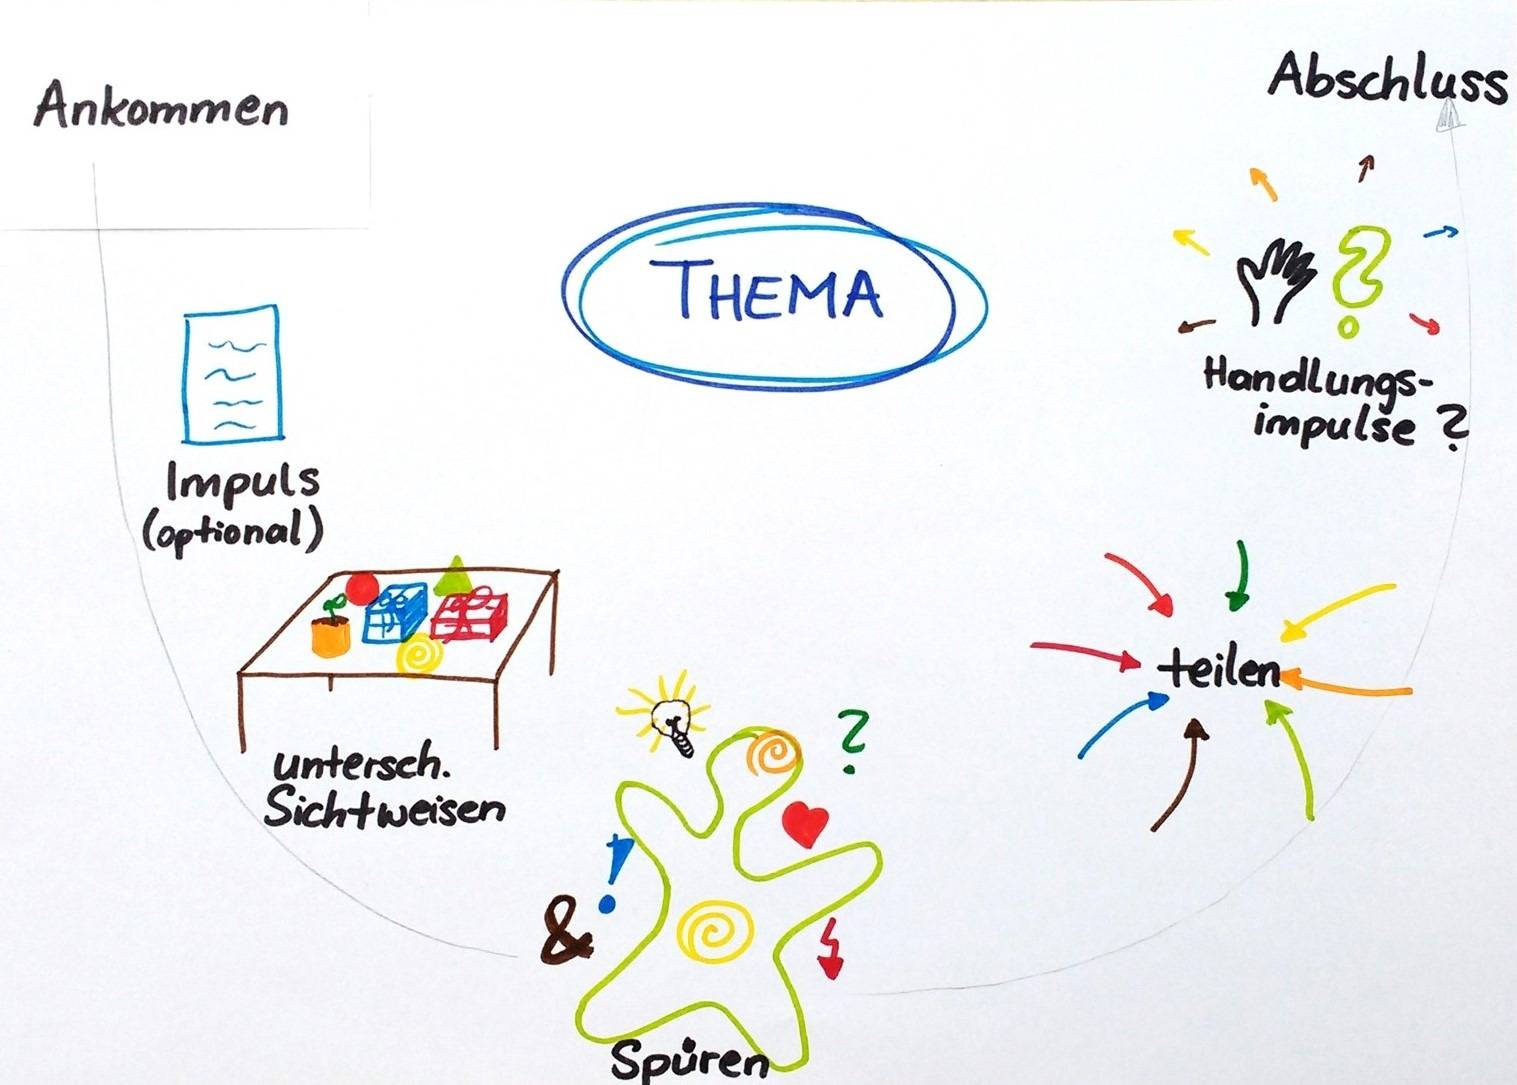 Ankommen
Impuls
(optional)
untersch.
Sichtweisen
THEMA
?
!
&
Spüren
teilen
?
Handlungs-
impulse ?
Abschluss